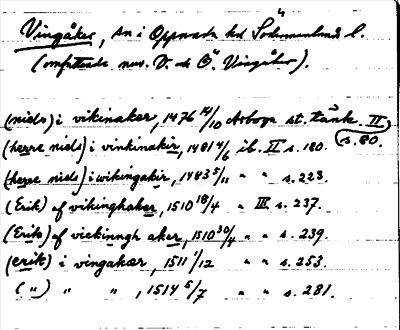 Vingåker, sn i Oppunda hd Södermanlands l.
(omfattade nuv. V. och Ö. Vingåker).
(niels) i vikinaker, 1476 14/10 Arboga st. tänk. II s. 80.
(herre niels) i vinkinakir, 1481 4/6 ib. II s. 180.
(herre niels) i wikingakir, 1483 5/11 " " s. 223.
(Erik) af vikinghaker, 1510 18/4 " III s. 237.
(Erik) af vickinngh aker, 1510 30/4 " " s. 239.
(erik) i vingakær, 1511 1/12 " " s. 253.
(") " " , 1514 5/7 " " s. 281.